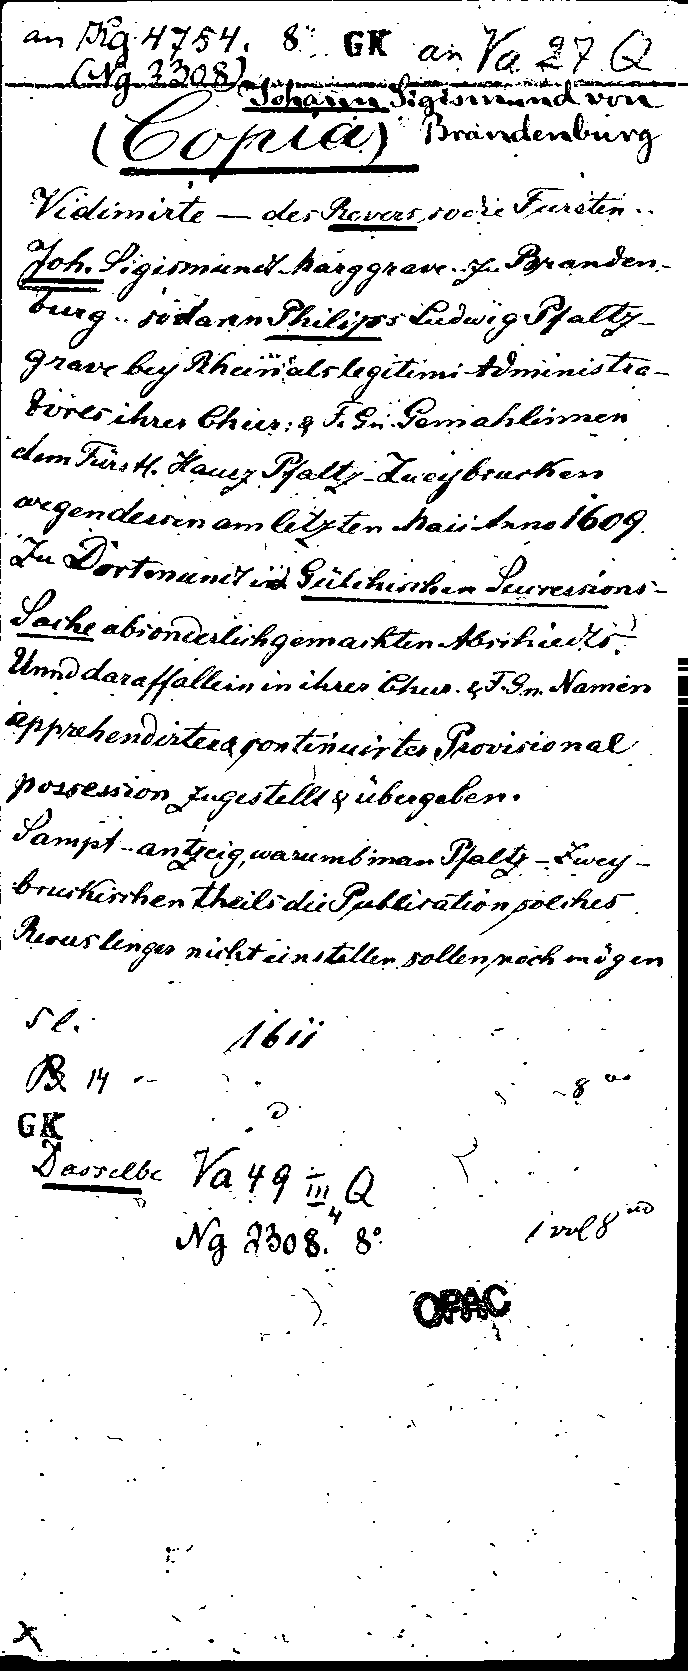 an Kg 4754. 8° GK an Va 27 Q
(Ng 2308)
Johann Sigismund von
(Copia) Brandenburg
Vidimirte — des Revers, so die Fürsten..
Joh. Sigismundt Marggrave zu Branden-
burg.. sodann Philips Ludwig Pfaltz-
grave bey Rhein als legitimi Administra-
tores ihrer Chur: & F. Gn. Gemahlinnen
dem Fürstl. Hausz Pfaltz-Zweybrucken
wegen dessen am letzten Maii Anno 1609
Zu Dortmundt in Gülchischen Successions-
Sache absonderlich gemachten Abschiedts.
Unnd darauff allein in ihrer Chur. & F. Gn. Namen
apprehendirter & continuirter Provisional
possession zugestellt & übergeben.
Sampt- antzeig, warumb man Pfaltz-Zwey-
bruckischen theils die Publication solches
Revers lenger nicht einstellen sollen, noch mögen
s l. 1611
14 8 vo
GK
Dasselbe Va 49 III Q
4
Ng 2308. 8° 1 vol 8 vo
OPAC
x